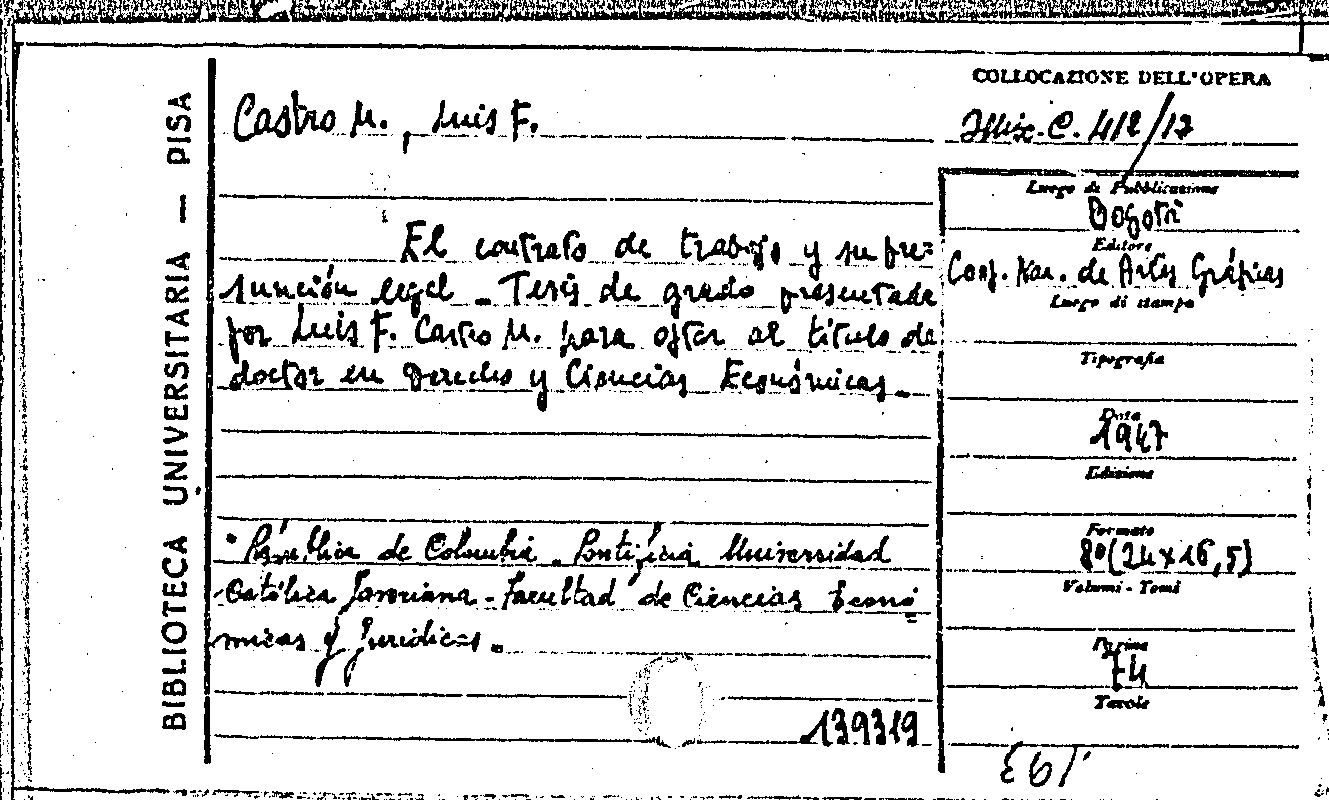 BIBLIOTECA UNIVERSITARIA — PISA
Castro M., Luis F.
El contrato de trabajo y su pre=
sunción legal _ Tesis de grado presentada
por Luis F. Castro M. para optar al titulo de
doctor en Derecho y Ciencias Económicas _
República de Colombia _ Pontificia Universidad
Católica Javeriana - Facultad de Ciencias Econó
micas y Juridicas.
139319
COLLOCAZIONE DELL'OPERA
Misc. C. 412/12
Luogo di Pubblicazione
Bogotà
Editore
Coop. Naz. de Artes Gráficas
Luogo di stampa
Tipografia
Data
1947
Edizione
Formato
8º (24x16,5)
Volumi - Tomi
Pagine
74
Tavole